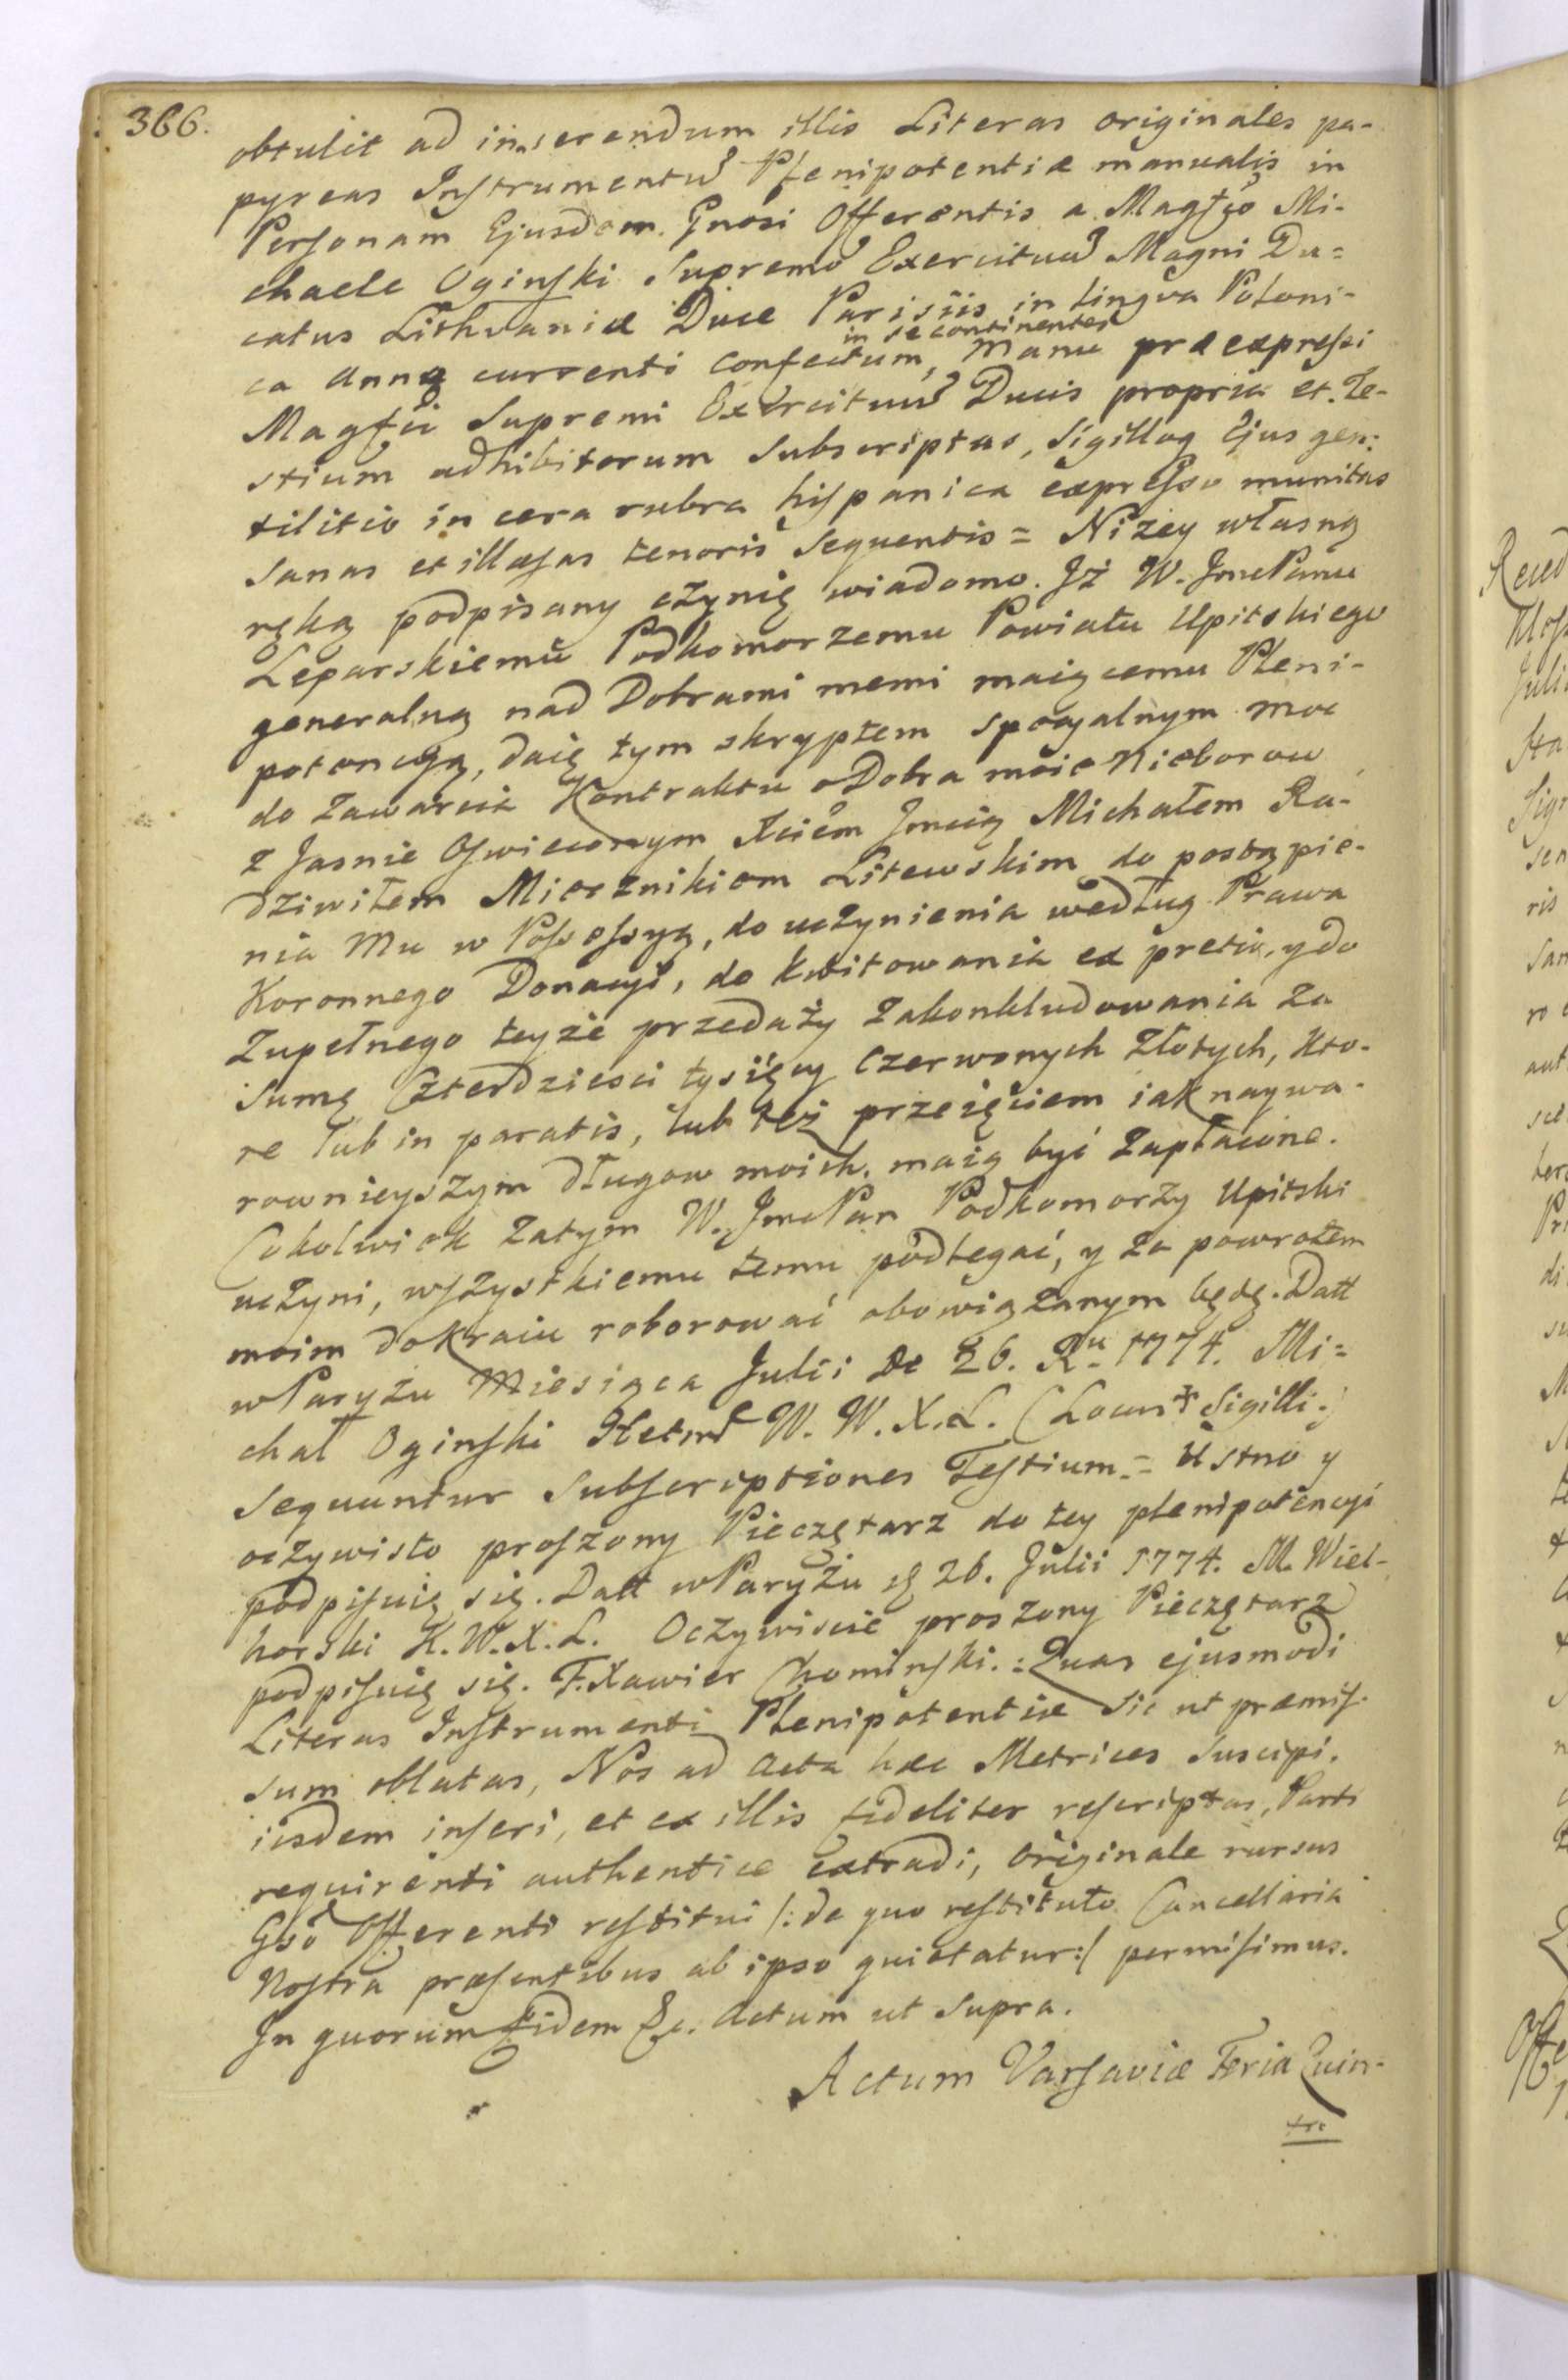 366.
obtulit ad inserendum illis Literas originales pa-
pyreas Instrumentũ Plenipotentiæ manualis in
Personam Ejusdem Gnosi Offerentis a Magfco Mi-
chaele Oginski Supremo Exercituũ Magni Du=
catus Lithvaniæ Duce Parisiis in lingva Poloni-
in se continentes
ca Anno currenti confectum, Manu præexpressi
Magfci Supremi Exercituũ Ducis propria et Te-
stium adhibitorum Subscriptas, Sigilloq Ejus gen:
tilitio in cera rubra hispanica expresso munitas
Sanas et illæsas tenoris Sequentis = Niżey własną
ręką podpisany czynię wiadomo. Iż W. JmcPanu
Leparskiemu Podkomorzemu Powiatu Upitskiego
generalną nad Dobrami memi maiącemu Pleni-
potencyą, daię tym skryptem specyalnym moc
do zawarcia Kontraktu o Dobra moie Nieborow
z Jasnie Oswieconym Xciem Jmcią Michałem Ra-
dziwiłem Miecznikiem Litewskim do postąpie-
nia Mu w Possessyą, do uczynienia według Prawa
Koronnego Donacyi, do kwitowania ex pretio, y do
Zupełnego teyże przedaży zakonkludowania za
Sumę Czterdziesci tysięcy Czerwonych Złotych, kto-
re lub in paratis, lub też przeięciem iak naywa-
rownieyszym długow moich, maią być zapłacone.
Cokolwiek zatym W. JmcPan Podkomorzy Upitski
uczyni, wszystkiemu temu podlegać, y za powrotem
moim do Kraiu roborować obowiązanym będę. Datt
w Paryżu Miesiąca Julii De 26. Ru 1774. Mi=
chał Oginski Hetmł W. W. X. L. (Locus + Sigilli.)
Sequuntur Subscriptiones Testium.= Ustno y
oczywisto proszony Pieczętarz do tey plenipotencyi
podpisuię się. Datt w Paryżu d 26. Julii 1774. M. Wiel-
horski K. W. X. L. Oczywiscie proszony Pieczętarz
podpisuię się. F. Xawier Chominski.: Quas ejusmodi
Literas Instrumenti Plenipotentiæ Sic ut præmis-
sum oblatas, Nos ad Acta hæc Metrices Suscipi,
iisdem inseri, et ex illis fideliter rescriptas, Parti
requirenti authentice extradi, Originale rursus
Gso Offerenti restitui /: de quo restituto Cancellaria
Nostra præsentibus ab ipso quietatur :/ permisimus.
In quorum Fidem &c. Actum ut Supra.
Actum Varsaviæ Feria Quin-
ta